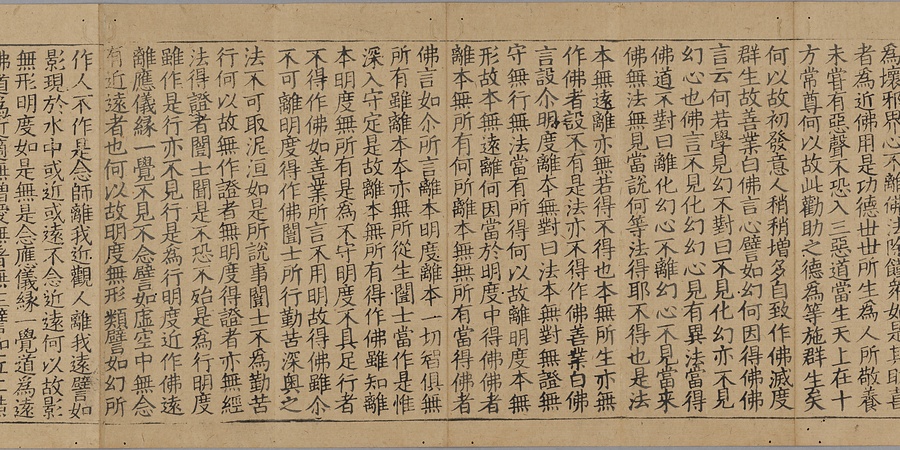 為壞邪界心不離佛
者為近佛用是功德世世所生為人所敬養
未甞有惡聲不恐入三惡道當生天上在十
方常尊何以故此勸助之德為等施群生矣
何以故初發意人稍稍增多自致作佛滅度
群生故善業白佛言心譬如幻何因得佛佛
言云何若學見幻不對曰不見化幻亦不見
幻心也佛言不見化幻幻心見有異法當得
佛道不對曰離化幻心不離幻心不見當來
佛無法無見當說何等法得耶不得也是法
本無遠離亦無若得不得也本無所生亦無
作佛者設不有是法亦不得作佛善業白佛
言設尒明度離本無對曰法本無對無證無
守無行無法當有所得何以故離明度本無
形故本無遠離何因當於明度中得佛佛者
離本無所有何所離本無所有當得佛
佛言如尒所言離本明度離本一切智俱無
所有雖離本本亦無所從生闓士當作是惟
深入守定是故離本無所有得作佛雖知離
本明度無所有是為不守明度不具足行者
不得作佛如善業所言不用明故得佛雖尒
不可離明度得作佛闓士所行勤苦深奧之
法不可取泥洹如是所說事闓士不為勤苦
行何以故無作證者無明度得證者亦無經
法得證者闓士聞是不恐不殆是為行明度
雖作是行亦不見行是為行明度近作佛遠
離應儀緣一覺不見不念譬如虛空中無念
有近遠者也何以故明度無形類譬如幻所
作人不作是念師離我近觀人離我遠譬如
影現於水中或近或遠不念近遠何以故影
無形明度如是無是念應儀緣一覺道為遠
佛道為近